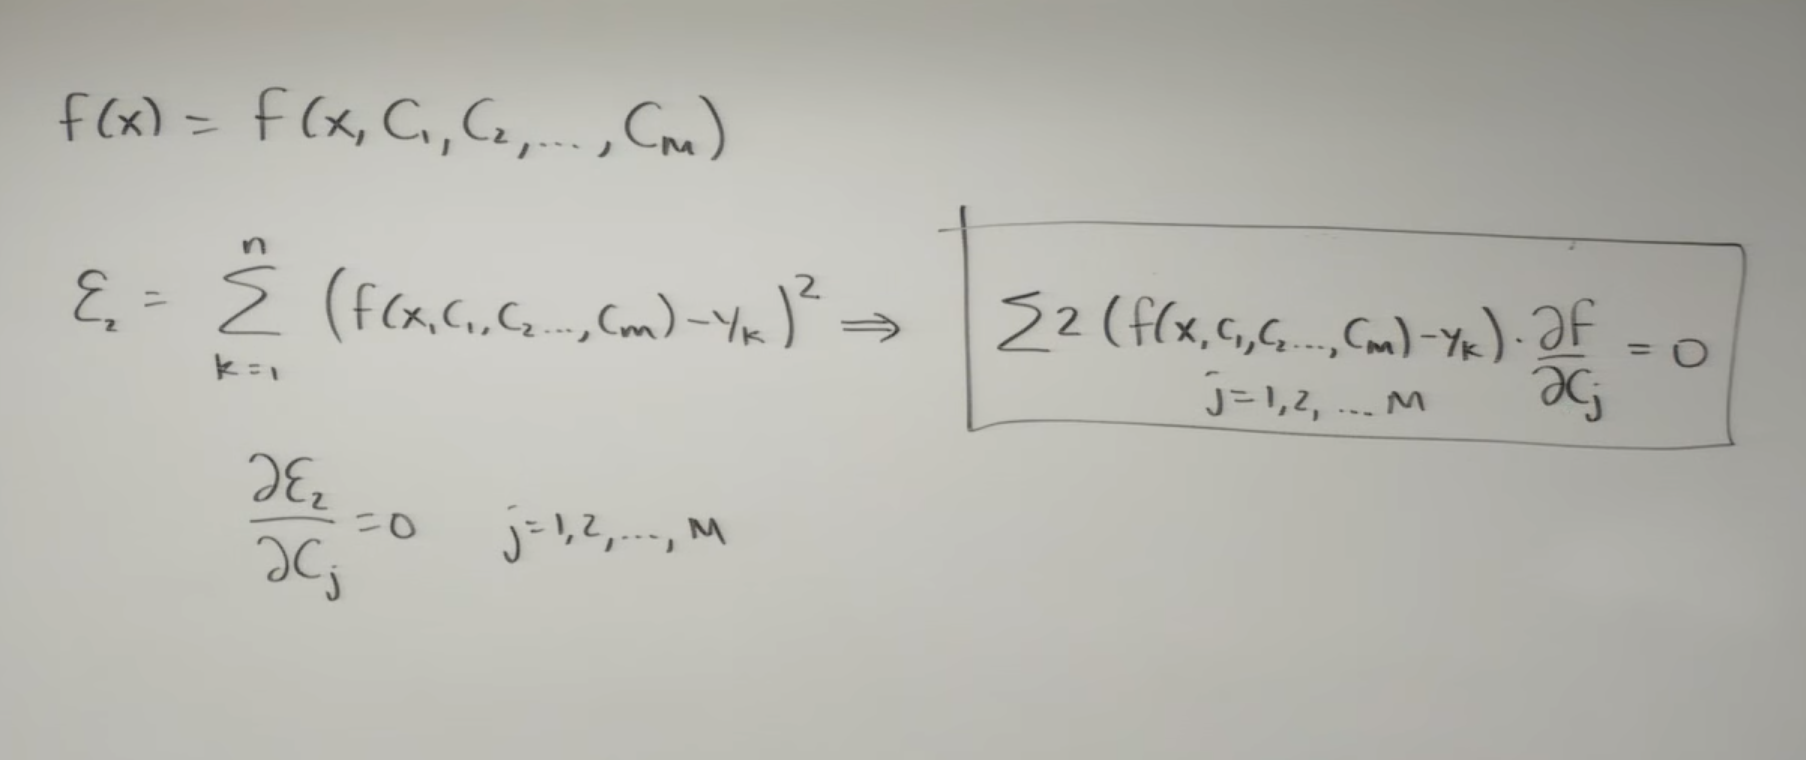 f(x) = f(x, C₁, C₂, ..., Cₘ)
ε₂ = ∑ₖ₌₁ⁿ (f(x, C₁, C₂ ..., Cₘ) - yₖ)² ⇒ ∑ 2 (f(x, C₁, C₂ ..., Cₘ) - yₖ) · ∂f/∂Cⱼ = 0
j = 1, 2, ... M
∂ε₂/∂Cⱼ = 0 j = 1, 2, ..., M